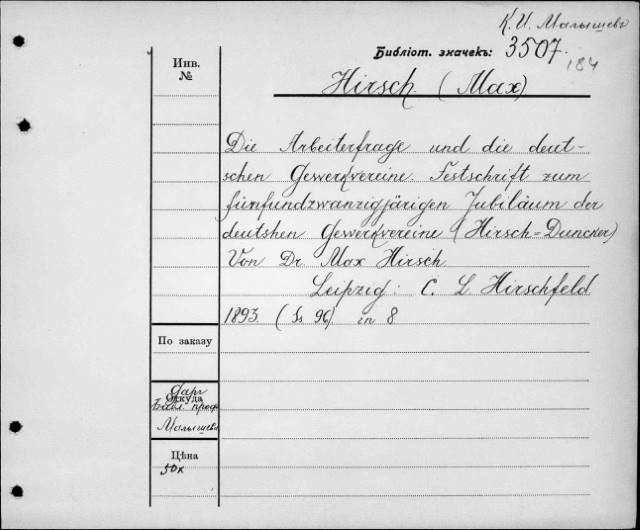 К. И. Малышевъ
Библіот. значекъ: 3507.
184
Инв.
№
Hirsch (Max)
Die Arbeiterfrage und die deut-
schen Gewerkvereine. Festschrift zum
fünfundzwanzigjärigen Jubiläum der
deutshen Gewerkvereine (Hirsch=Duncker)
Von Dr. Max Hirsch
Leipzig: C. L. Hirschfeld
1893. (Ss 96) in 8
По заказу
Откуда
Даръ
Библ. проф.
Малышева
Цѣна
50к